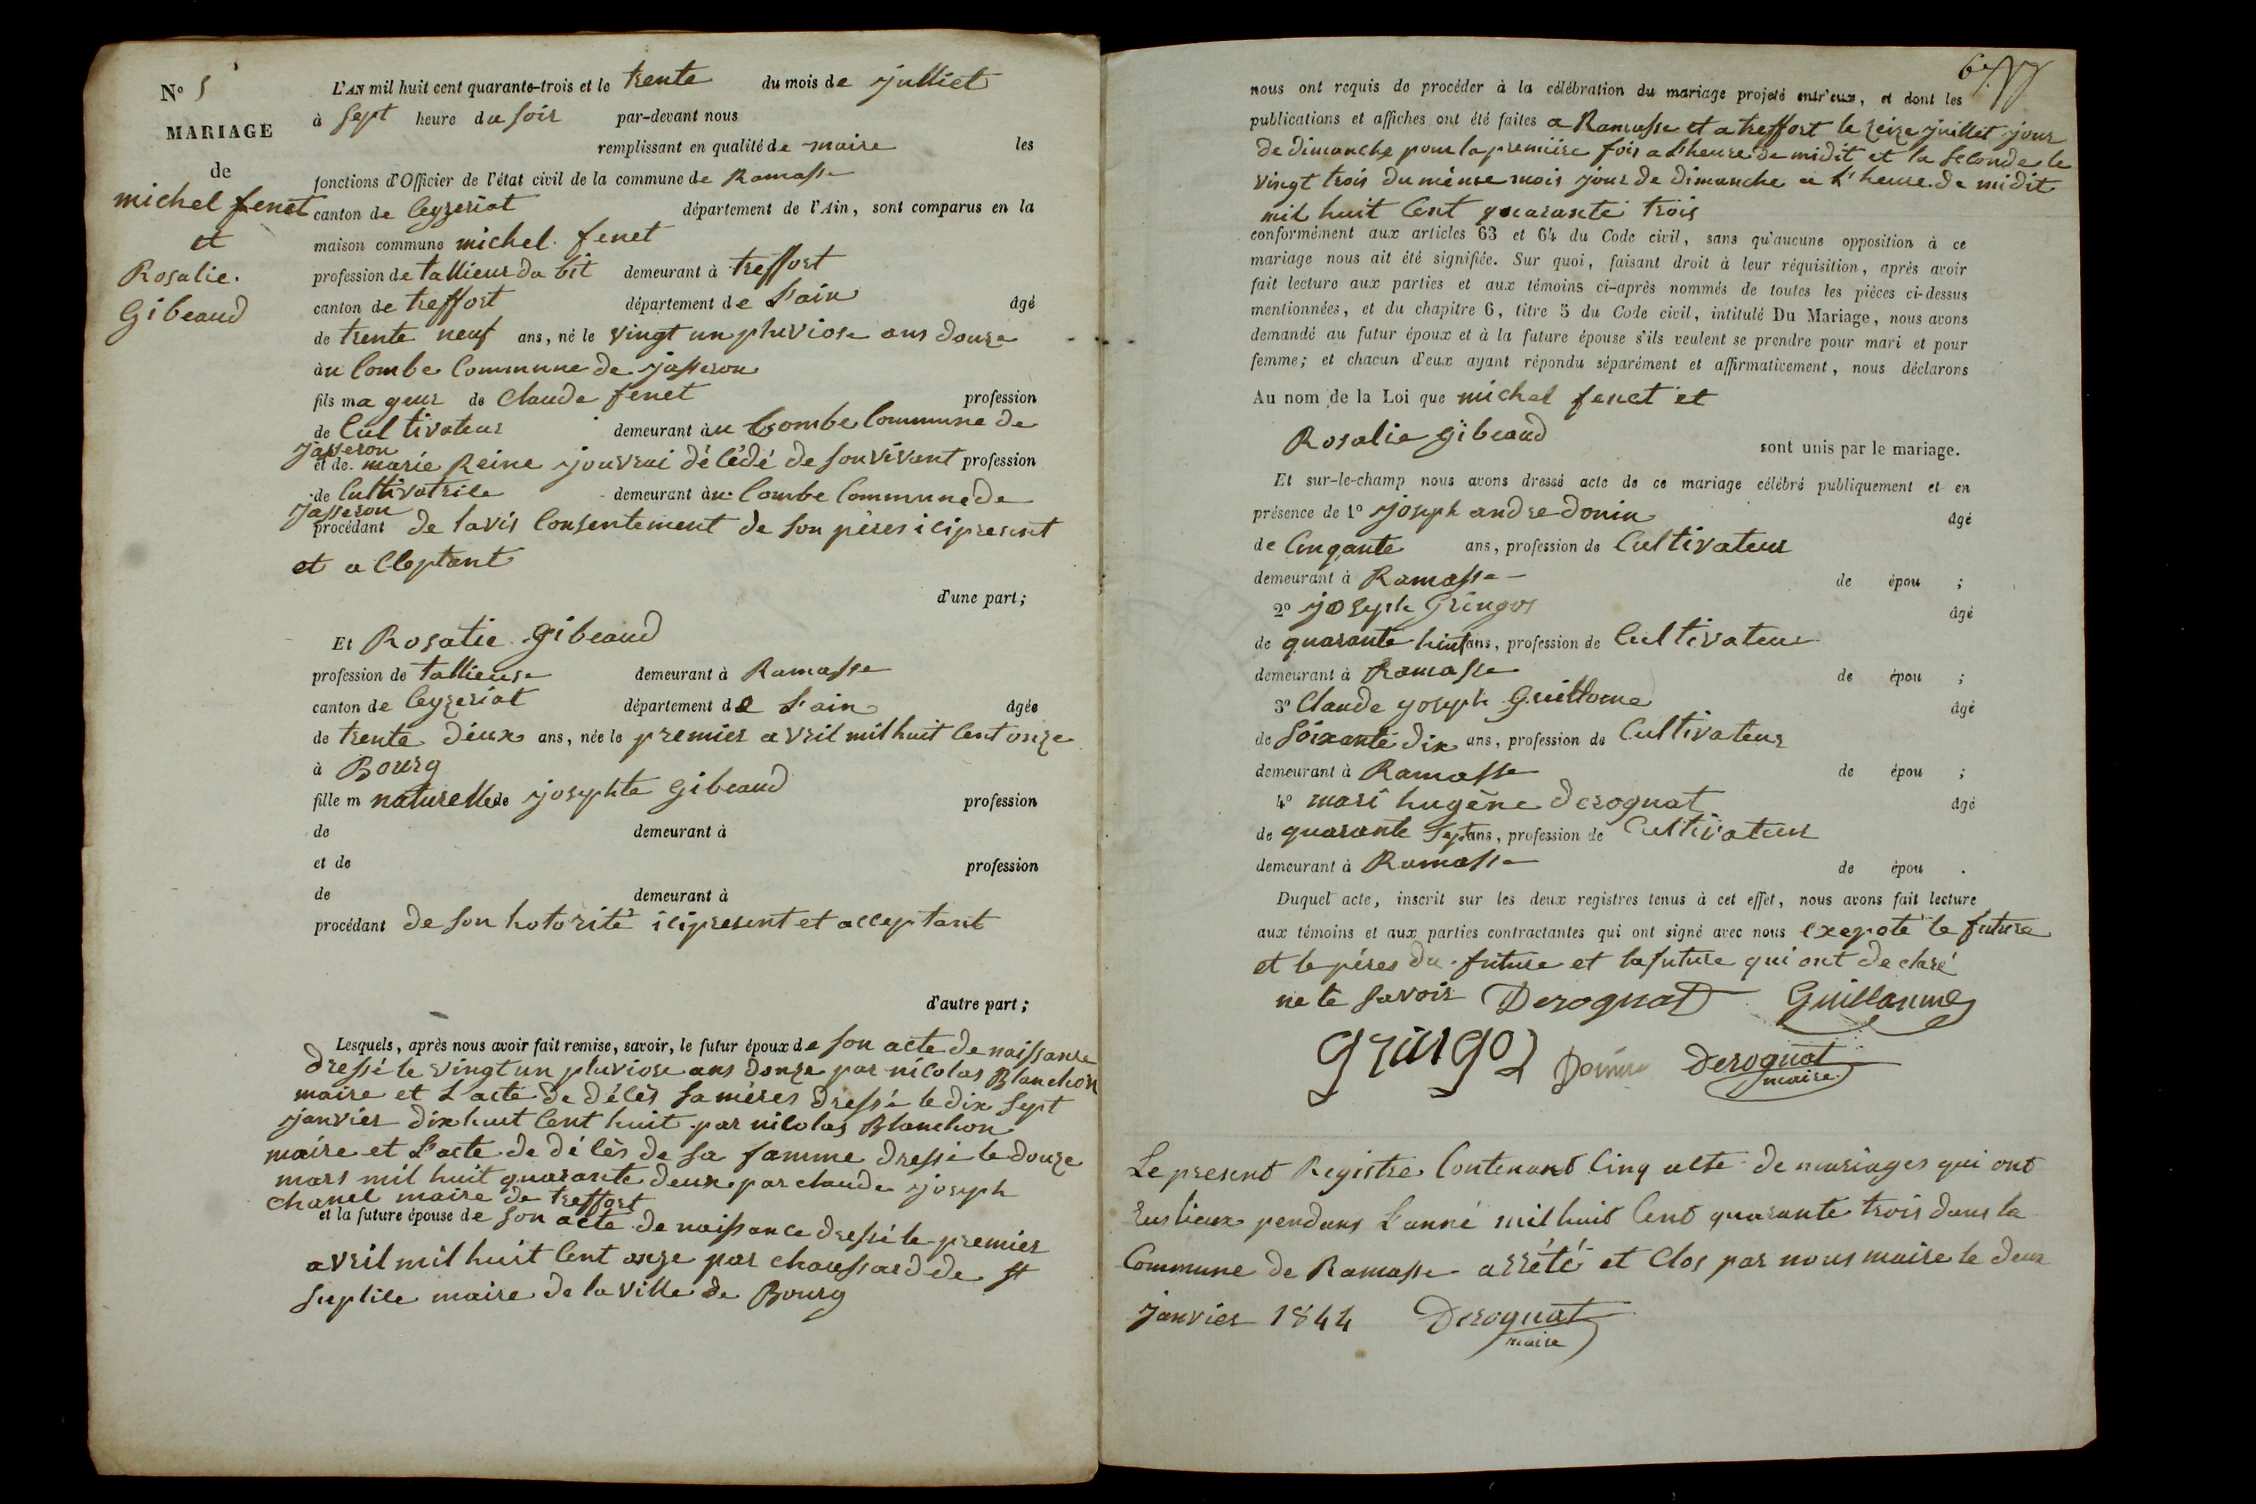 Nº 5
MARIAGE
de
michel fenet
et
Rosalie.
Gibeaud
L'AN mil huit cent quarante-trois et le trente du mois de julliet
à sept heure du soir par-devant nous
remplissant en qualité de maire les
fonctions d'Officier de l'état civil de la commune de Ramasse
canton de Ceyzeriat département de l'Ain, sont comparus en la
maison commune michel fenet
profession de tallieur da bit demeurant à treffort
canton de treffort département de L'ain âgé
de trente neuf ans, né le vingt un pluviose ans douze
àu Combe Commune de jasseron
fils mageur de Claude fenet profession
de Cultivateur demeurant àu Combe Commune de
jasseron
et de marie Reine jouvrai décédé de son vivant profession
de Cultivatrice demeurant àu Combe Commune de
jasseron
procédant de lavis Consentement de son pères ici present
et acceptant
d'une part;
Et Rosalie Gibeaud
profession de tallieuse demeurant à Ramasse
canton de Ceyzeriat département de L'ain âgée
de trente deux ans, née le premier avril mil huit Cent onze
à Bourg
fille m naturelle de josephte Gibeaud profession
de demeurant à
et de profession
de demeurant à
procédant de son hotorité ici present et acceptant
d'autre part;
Lesquels, après nous avoir fait remise, savoir, le futur époux de son acte de naissance
dressé le vingt un pluviose ans donze par nicolas Blanchon
maire et L'acte de décès sa mères dressé le dix sept
janvier dix huit Cent huit par nicolas Blanchon
maire et L'acte de décès de sa famme dressé le douze
mars mil huit quarante deux par claude joseph
chanel maire de treffort
et la future épouse de son acte de naissance dressé le premier
avril mil huit Cent onze par choussard de st
suplice maire de la ville de Bourg
nous ont requis de procéder à la célébration du mariage projeté entr'eux, et dont les
publications et affiches ont été faites a Ramasse et a treffort le seize juillet jour
de dimanche pour la premiere fois a L'heure de midit et la seconde le
vingt trois du même mois jour de dimanche a L'heure de midit
mil huit Cent quarante trois
conformément aux articles 63 et 64 du Code civil, sans qu'aucune opposition à ce
mariage nous ait été signifiée. Sur quoi, faisant droit à leur réquisition, après avoir
fait lecture aux parties et aux témoins ci-après nommés de toutes les pièces ci-dessus
mentionnées, et du chapitre 6, titre 5 du Code civil, intitulé Du Mariage, nous avons
demandé au futur époux et à la future épouse s'ils veulent se prendre pour mari et pour
femme; et chacun d'eux ayant répondu séparément et affirmativement, nous déclarons
Au nom de la Loi que michel fenet et
Rosalie gibeaud sont unis par le mariage.
Et sur-le-champ nous avons dressé acte de ce mariage célébré publiquement et en
présence de 1º joseph andre donin âgé
de Cinqante ans, profession de Cultivateur
demeurant à Ramasse de épou ;
2º joseph Gringoz âgé
de quarante huit ans, profession de Cultivateur
demeurant à Ramasse de épou ;
3º Claude joseph Guillome âgé
de soixante dix ans, profession de Cultivateur
demeurant à Ramasse de épou ;
4º mari hugène derognat âgé
de quarante sept ans, profession de Cultivateur
demeurant à Ramasse de épou .
Duquel acte, inscrit sur les deux registres tenus à cet effet, nous avons fait lecture
aux témoins et aux parties contractantes qui ont signé avec nous exepoté le future
et le péres du future et la future qui ont declaré
ne le savoir Derognat Guillaume
gringoz Donin Derognat
maire
Le present Registre Contenant Cinq acte de mariages qui ont
eus lieux pendans L'anné mil huit Cent quarante trois dans la
Commune de Ramasse arrété et Clos par nous maire le deux
janvier 1844 Derognat
maire